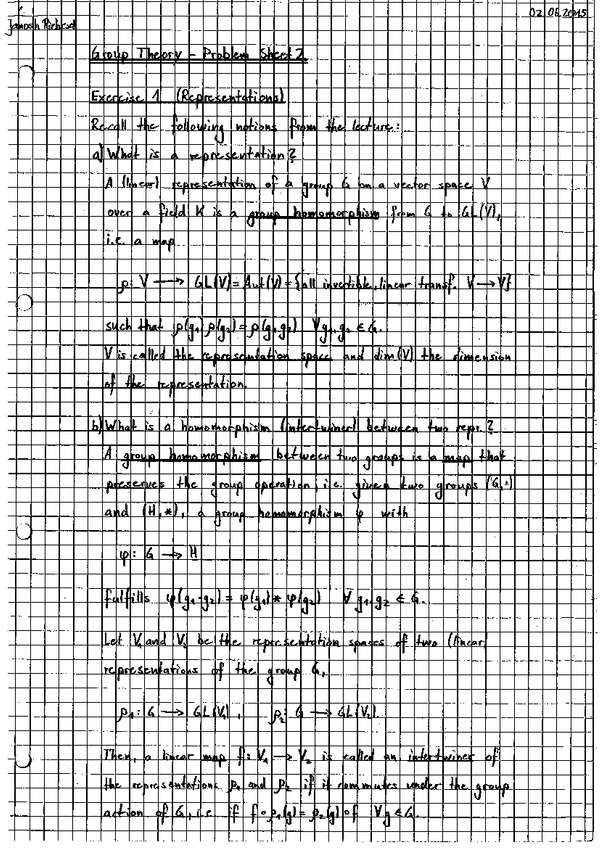 02.06.2015
Group Theory – Problem Sheet 2
Exercise 1 (Representations)
Recall the following notions from the lecture:
a) What is a representation?
A (linear) representation of a group G on a vector space V
over a field K is a group homomorphism from G to GL(V),
i.e. a map
ρ: V ⟶ GL(V) = Aut(V) = {all invertible, linear transf. V → V}
such that ρ(g₁)ρ(g₂) = ρ(g₁g₂) ∀ g₁,g₂ ∈ G.
V is called the representation space and dim(V) the dimension
of the representation.
b) What is a homomorphism (intertwiner) between two repr.?
A group homomorphism between two groups is a map that
preserves the group operation, i.e. given two groups (G,·)
and (H,*), a group homomorphism φ with
φ: G ⟶ H
fulfills φ(g₁·g₂) = φ(g₁) * φ(g₂) ∀ g₁,g₂ ∈ G.
Let V₁ and V₂ be the representation spaces of two (linear)
representations of the group G,
ρ₁: G ⟶ GL(V₁), ρ₂: G ⟶ GL(V₂).
Then, a linear map f: V₁ → V₂ is called an intertwiner of
the representations ρ₁ and ρ₂ if it commutes under the group
action of G, i.e. if f∘ρ₁(g) = ρ₂(g)∘f ∀ g ∈ G.